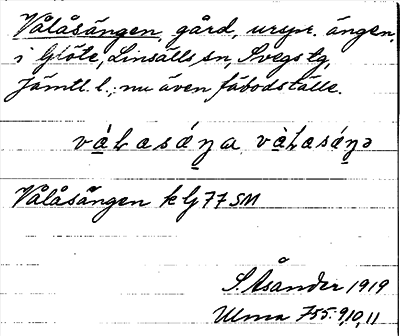 Vålåsängen, gård, urspr. ängen,
i Glöte, Linsälls sn, Svegs tg,
Jämtl. l.; nu även fäbodställe.
Vålåsängen k G 77 SM
S. Åsander 1919
Ulma 755: 9, 10, 11